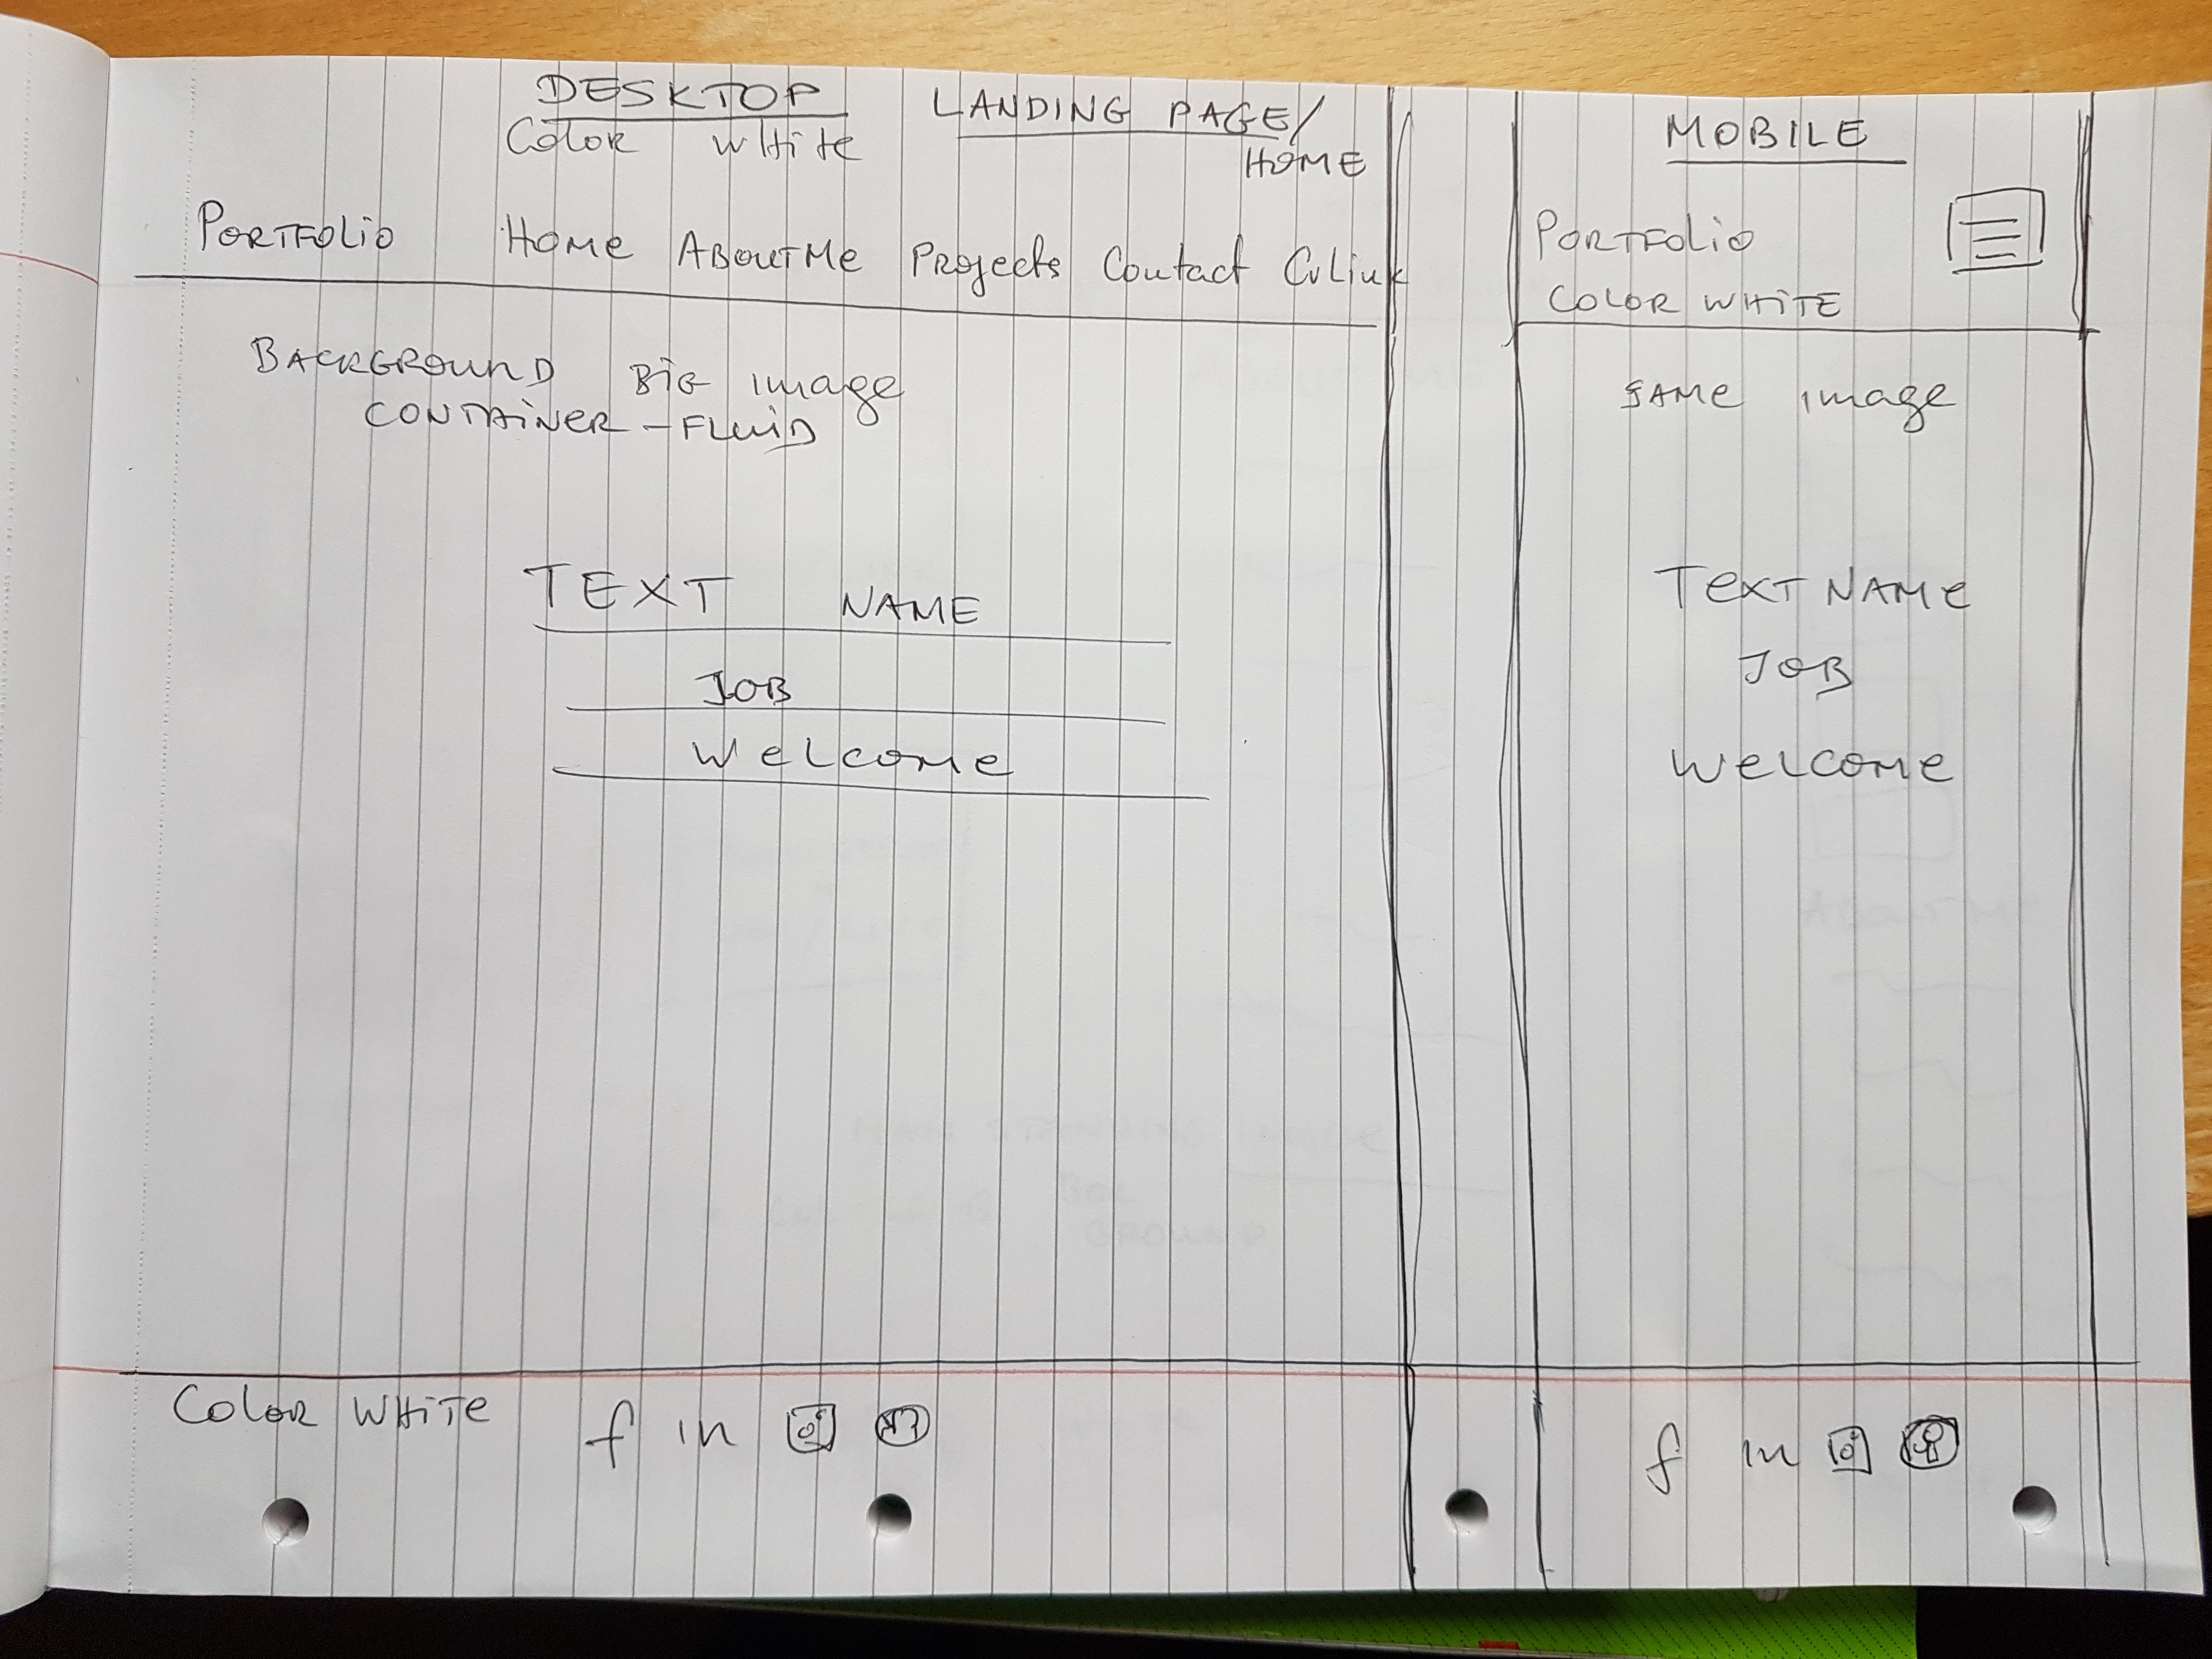 DESKTOP
Color White
LANDING PAGE/
HOME
PORTFOLIO Home About Me Projects Contact Cv Link
BACKGROUND BIG image
CONTAINER-FLUID
TEXT NAME
JOB
Welcome
Color WHITE f in
MOBILE
PORTFOLIO
COLOR WHITE
SAME image
TEXT NAME
JOB
Welcome
f in